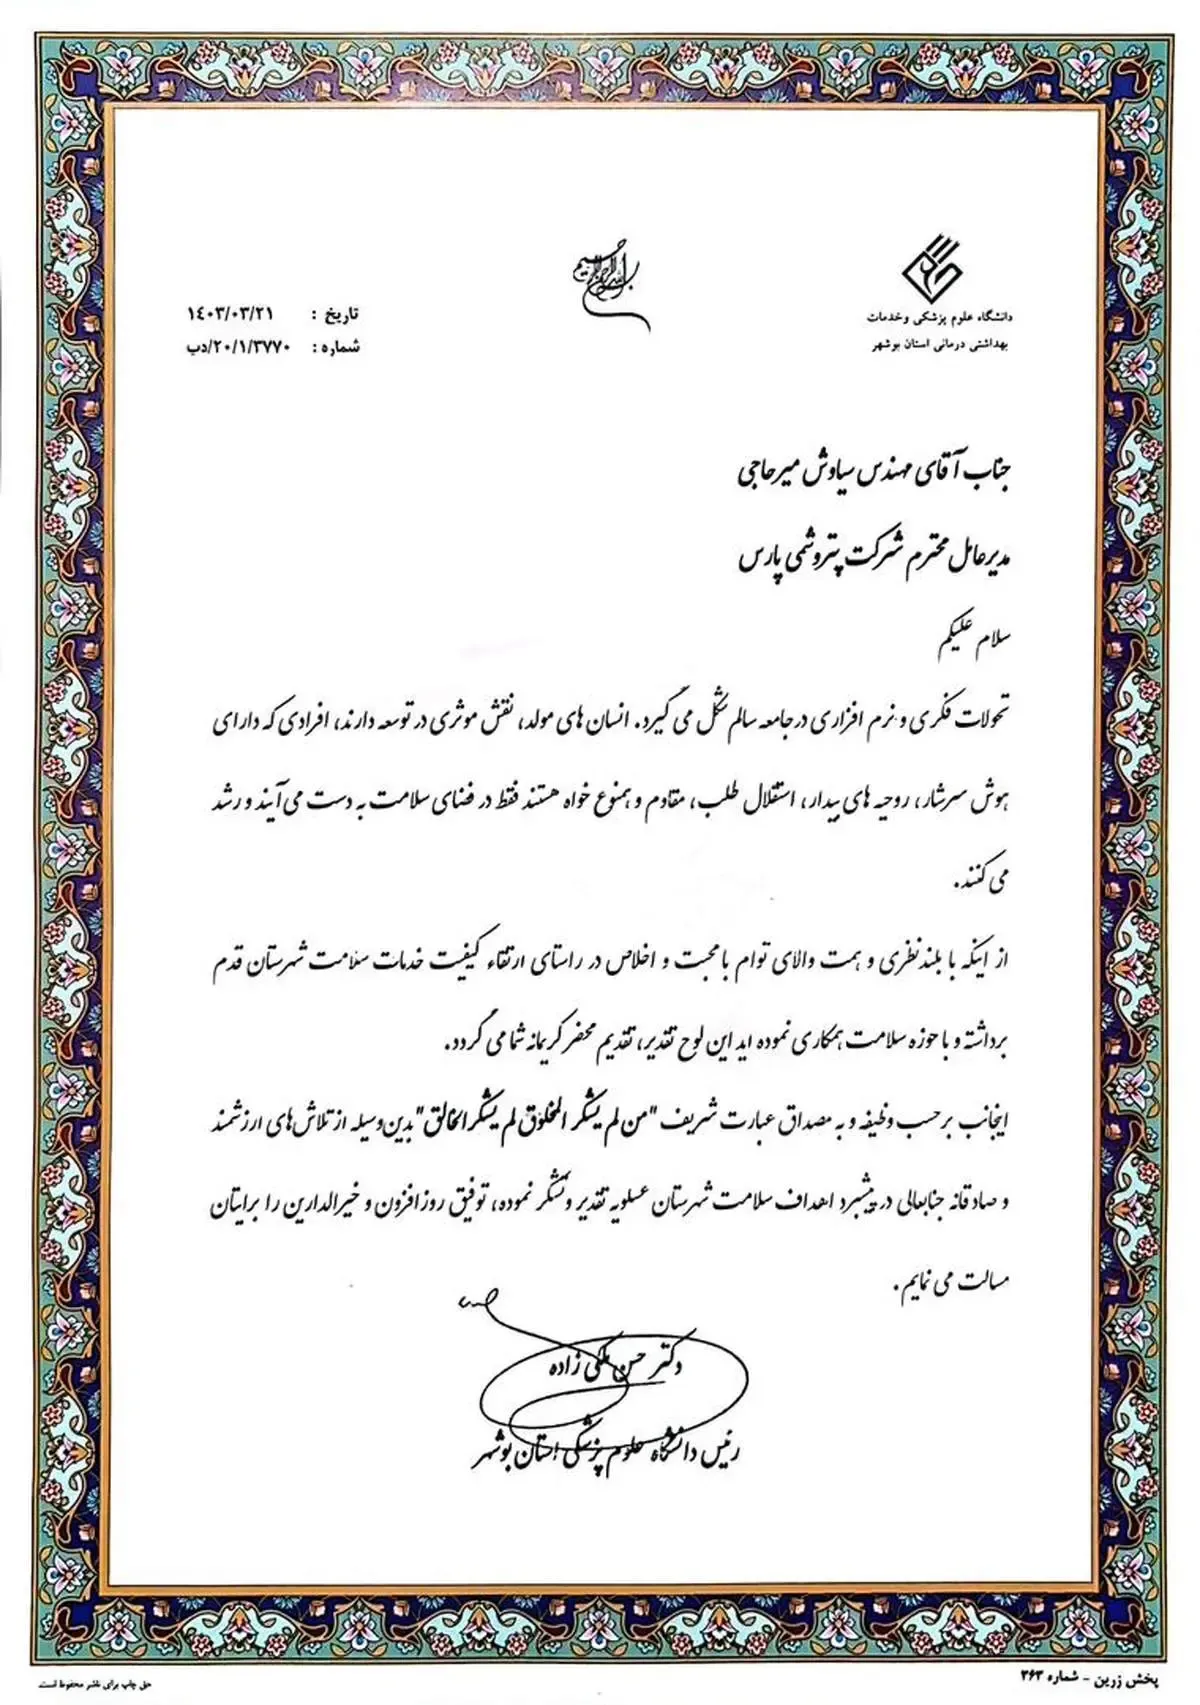 بسم الله الرحمن الرحیم
دانشگاه علوم پزشکی وخدمات
بهداشتی درمانی استان بوشهر
تاریخ : ١٤٠٣/٠٣/٢١
شماره : ٢٠/١/٣٧٧٠/دب
جناب آقای مهندس سیاوش میرحاجی
مدیرعامل محترم شرکت پتروشیمی پارس
سلام علیکم
تحولات فکری و نرم افزاری در جامعه سالم شکل می گیرد. انسان های مولد، نقش موثری در توسعه دارند، افرادی که دارای
هوش سرشار، روحیه های بیدار، استقلال طلب، مقاوم و همنوع خواه هستند فقط در فضای سلامت به دست می آیند و رشد
می کنند.
از اینکه با بلندنظری و همت والای توام با محبت و اخلاص در راستای ارتقاء کیفیت خدمات سلامت شهرستان قدم
برداشته و با حوزه سلامت همکاری نموده اید این لوح تقدیر، تقدیم محضر کریمانه شما می گردد.
اینجانب بر حسب وظیفه و به مصداق عبارت شریف "من لم یشکر المخلوق لم یشکر الخالق" بدین وسیله از تلاش های ارزشمند
و صادقانه جنابعالی در پیشبرد اهداف سلامت شهرستان عسلویه تقدیر و تشکر نموده، توفیق روز افزون و خیرالدارین را برایتان
مسالت می نمایم.
دکتر حسن ملکی زاده
رئیس دانشگاه علوم پزشکی استان بوشهر
پخش زرین - شماره ۲۶۳
حق چاپ برای ناشر محفوظ است.